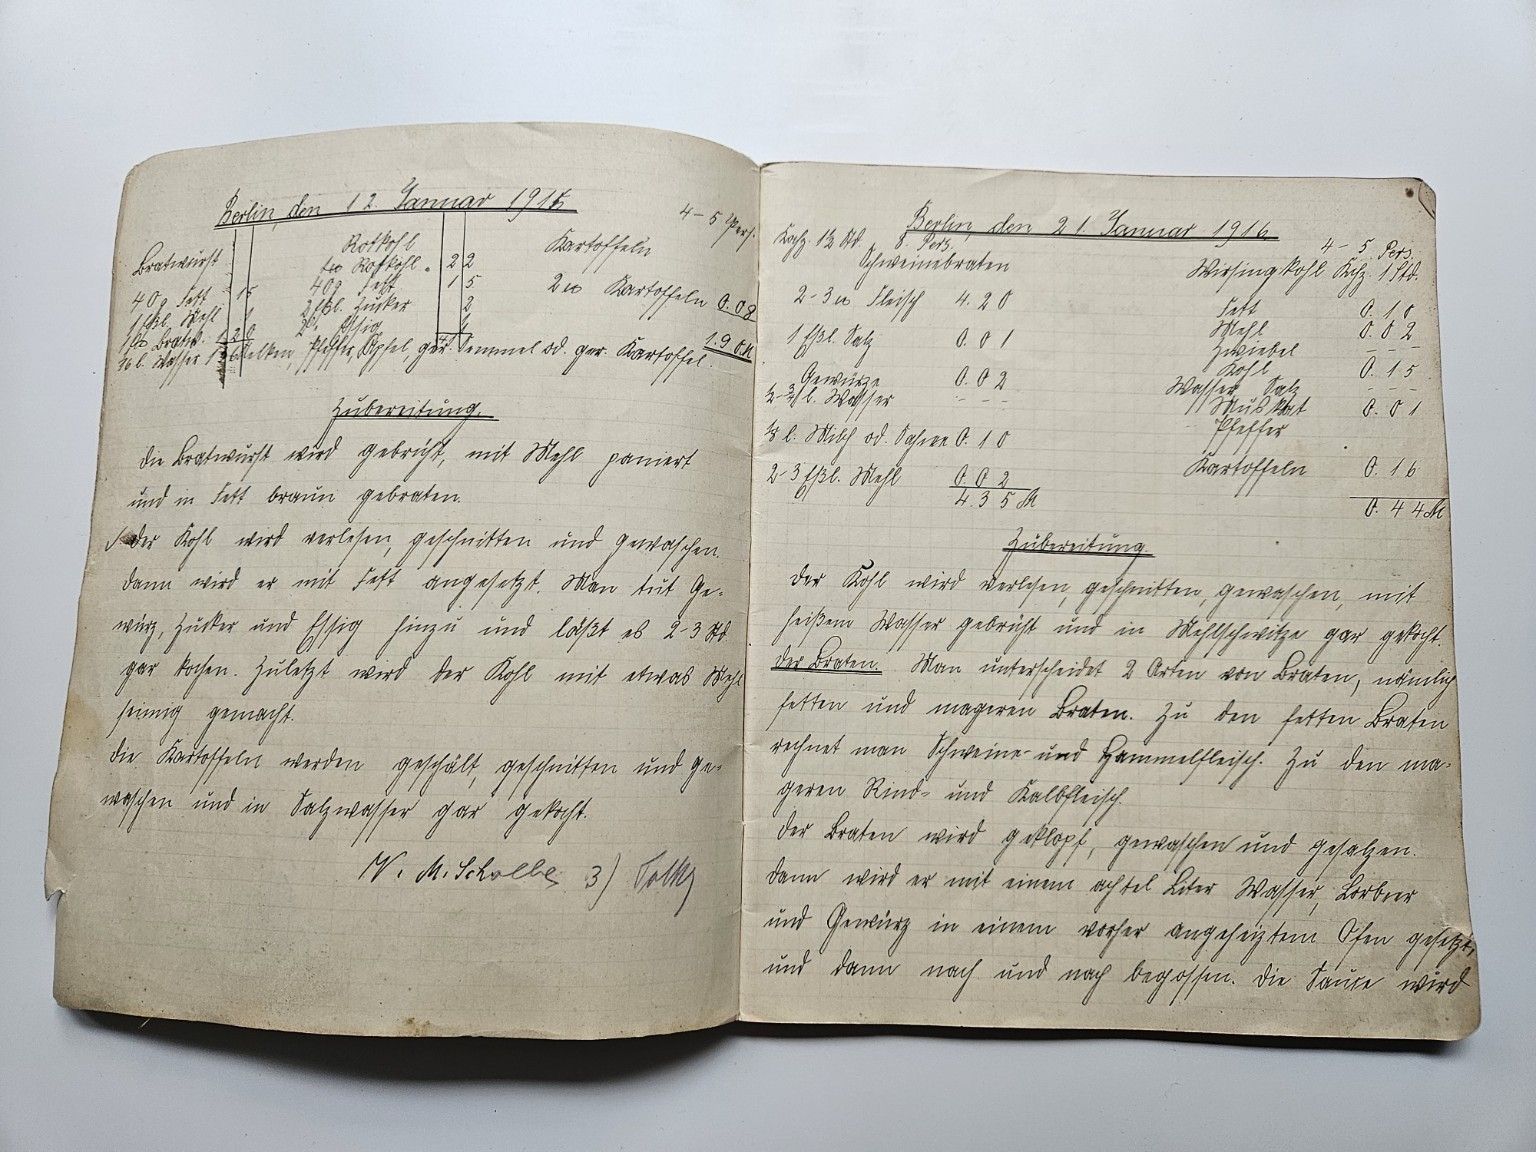 Berlin, den 12 Januar 1916
4-5 Pers.
Bratwurst Rotkohl Kartoffeln
Rotkohl 22
40 g Fett 15 40 g Fett 15 2 Kartoffeln 0.08
1 Eßl. Mehl 1 2 Eßl. Zucker 2
Essig
l. Wasser Nelken, Pfeffer Äpfel, ger. Semmel od. ger. Kartoffel. 1.90 M
Zubereitung.
Die Bratwurst wird gebrüht, mit Mehl paniert
und in Fett braun gebraten.
Der Kohl wird verlesen, geschnitten und gewaschen.
Dann wird er mit Fett angesetzt. Man tut Ge-
würz, Zucker und Essig hinzu und läßt es 2-3 Std
gar kochen. Zuletzt wird der Kohl mit etwas Mehl
seimig gemacht.
Die Kartoffeln werden geschält, geschnitten und ge-
waschen und in Salzwasser gar gekocht.
M. Scholbe 3)
Berlin, den 21. Januar 1916.
Kochz. 1½ Std. 8 Pers. 4-5 Pers.
Schweinebraten Wirsingkohl Kochz. 1 Std.
2-3 Fleisch 4.20 Fett 0.10
Mehl 0.02
1 Eßl. Salz 0.01 Zwiebel - - -
Kohl 0.15
Gewürze 0.02 Wasser Salz - - -
l. Wasser - - - Muskat 0.01
Pfeffer
⅛ l. Milch od. Sahne 0.10
2-3 Eßl. Mehl 0.02 Kartoffeln 0.16
4.35 M 0.44 M
Zubereitung.
Der Kohl wird verlesen, geschnitten, gewaschen, mit
heißem Wasser gebrüht und in Mehlschwitze gar gekocht.
Der Braten. Man unterscheidet 2 Arten von Braten, nämlich
fetten und mageren Braten. Zu den fetten Braten
rechnet man Schweine- und Hammelfleisch. Zu den ma-
geren Rind- und Kalbfleisch.
Der Braten wird geklopft, gewaschen und gesalzen.
Dann wird er mit einem achtel Liter Wasser, Lorbeer
und Gewürz in einem vorher angeheiztem Ofen gesetzt,
und dann nach und nach begossen. Die Sauce wird